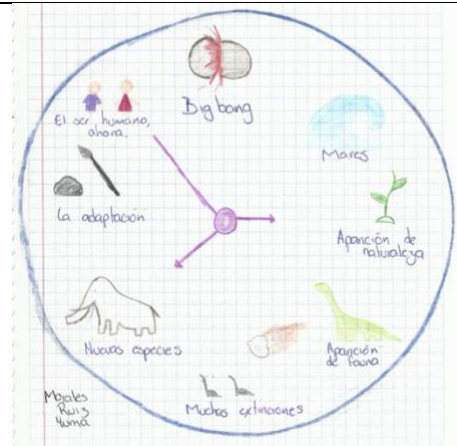 Big bang
Mares
Aparición de
naturaleza
Aparición
de fauna
Muchas extinciones
Nuevas especies
La adaptación
El ser humano,
ahora.
Morales
Ruiz
Yuma